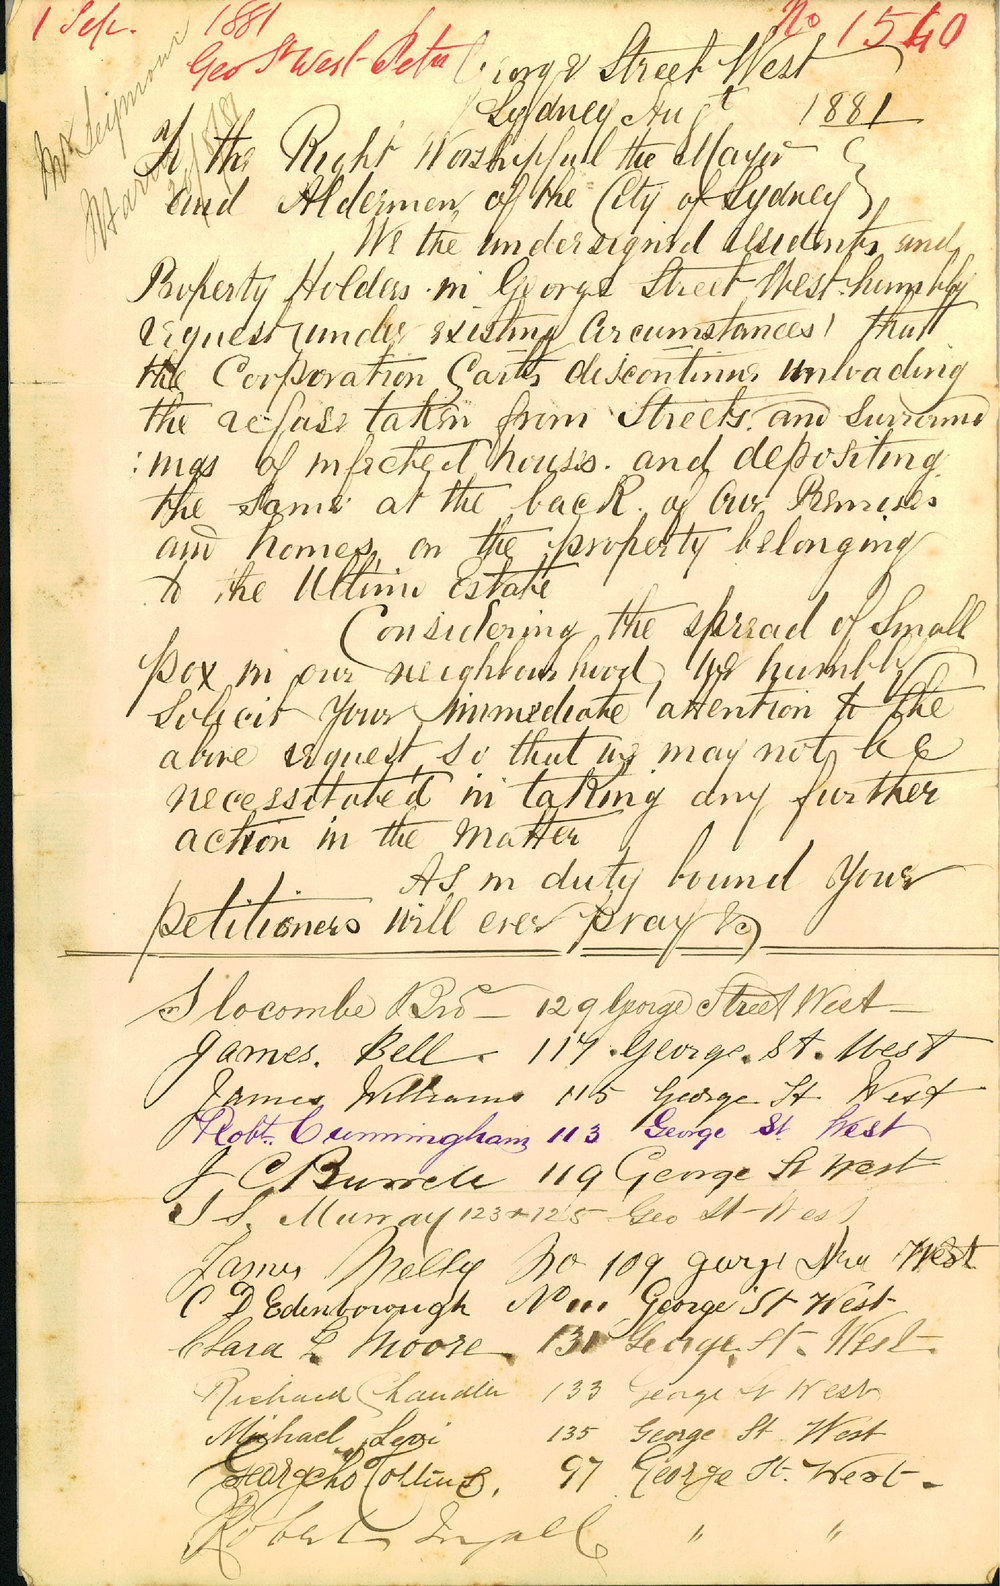 1 Sep. 1881 No 1540
Geo St West Petn
George Street West
Sydney Augt 1881
To the Right Worshipfull the Mayor
and Aldermen of the City of Sydney
We the undersigned residents and
Property Holders in George Street West humbly
request (under existing Circumstances) that
the Corporation Carts discontinue unloading
the refuse taken from Streets and Surround
:ings of infected houses. and depositing
the same at the back of our Premises
and homes, on the property belonging
to the Ultimo Estate
Considering the spread of Small
pox in our neighbourhood, we humbly
Solicit Your immediate attention to the
above request, so that we may not be
necessitated in taking any further
action in the matter
As in duty bound Your
petitioners will ever pray &c
Slocombe Bro 129 George Street West
James. Bell. 117. George. St. West
James Williams 115 George St West
Robt. Cunningham 113 George St West
J C 119 George St West
J S. Murray 123 + 125 Geo St West
James Melly No 109 George Stre West
C D Edenborough No 111 George St West
Clara L. Moore 131 George. St. West.
Richard Chandler 133 George St West
Michael Levi 135 George St West
Collins, 97 George St. West.
Robert " "